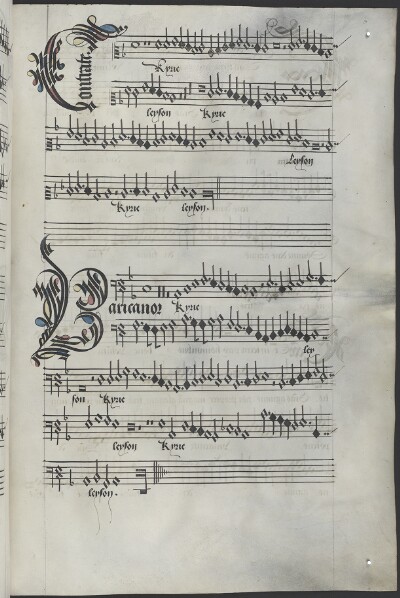 Contratenor
Kyrie
leyson Kyrie
Leyson
Kyrie leyson.
Baricanor Kyrie
ley
son. Kyrie
leyson Kyrie
leyson.